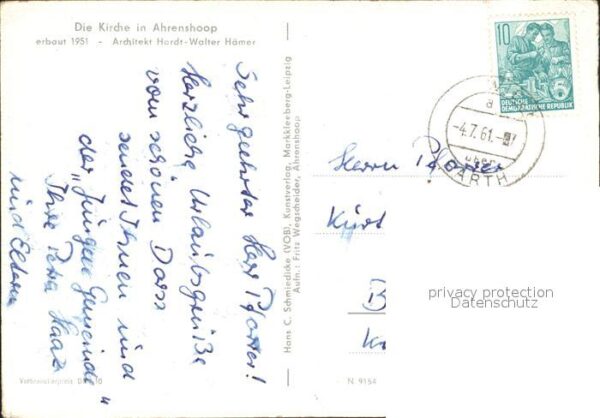 Die Kirche in Ahrenshoop
erbaut 1951 - Architekt Hardt-Walter Hämer
Sehr geehrter Herr Pfarrer!
Herzliche Urlaubsgrüße
vom schönen Darss
sendet Ihnen und
der „Jungen Gemeinde"
Ihre Petra Haaz
und Eltern
Verbraucherpreis
Hans C. Schmiedicke (VOB), Kunstverlag, Markkleeberg-Leipzig
Aufn.: Fritz Wegscheider, Ahrenshoop
N 9154
10
DEUTSCHE
DEMOKRATISCHE REPUBLIK
-4.7.61.
über
BARTH
Herrn Pfarrer
Kurt
B
privacy protection
Datenschutz